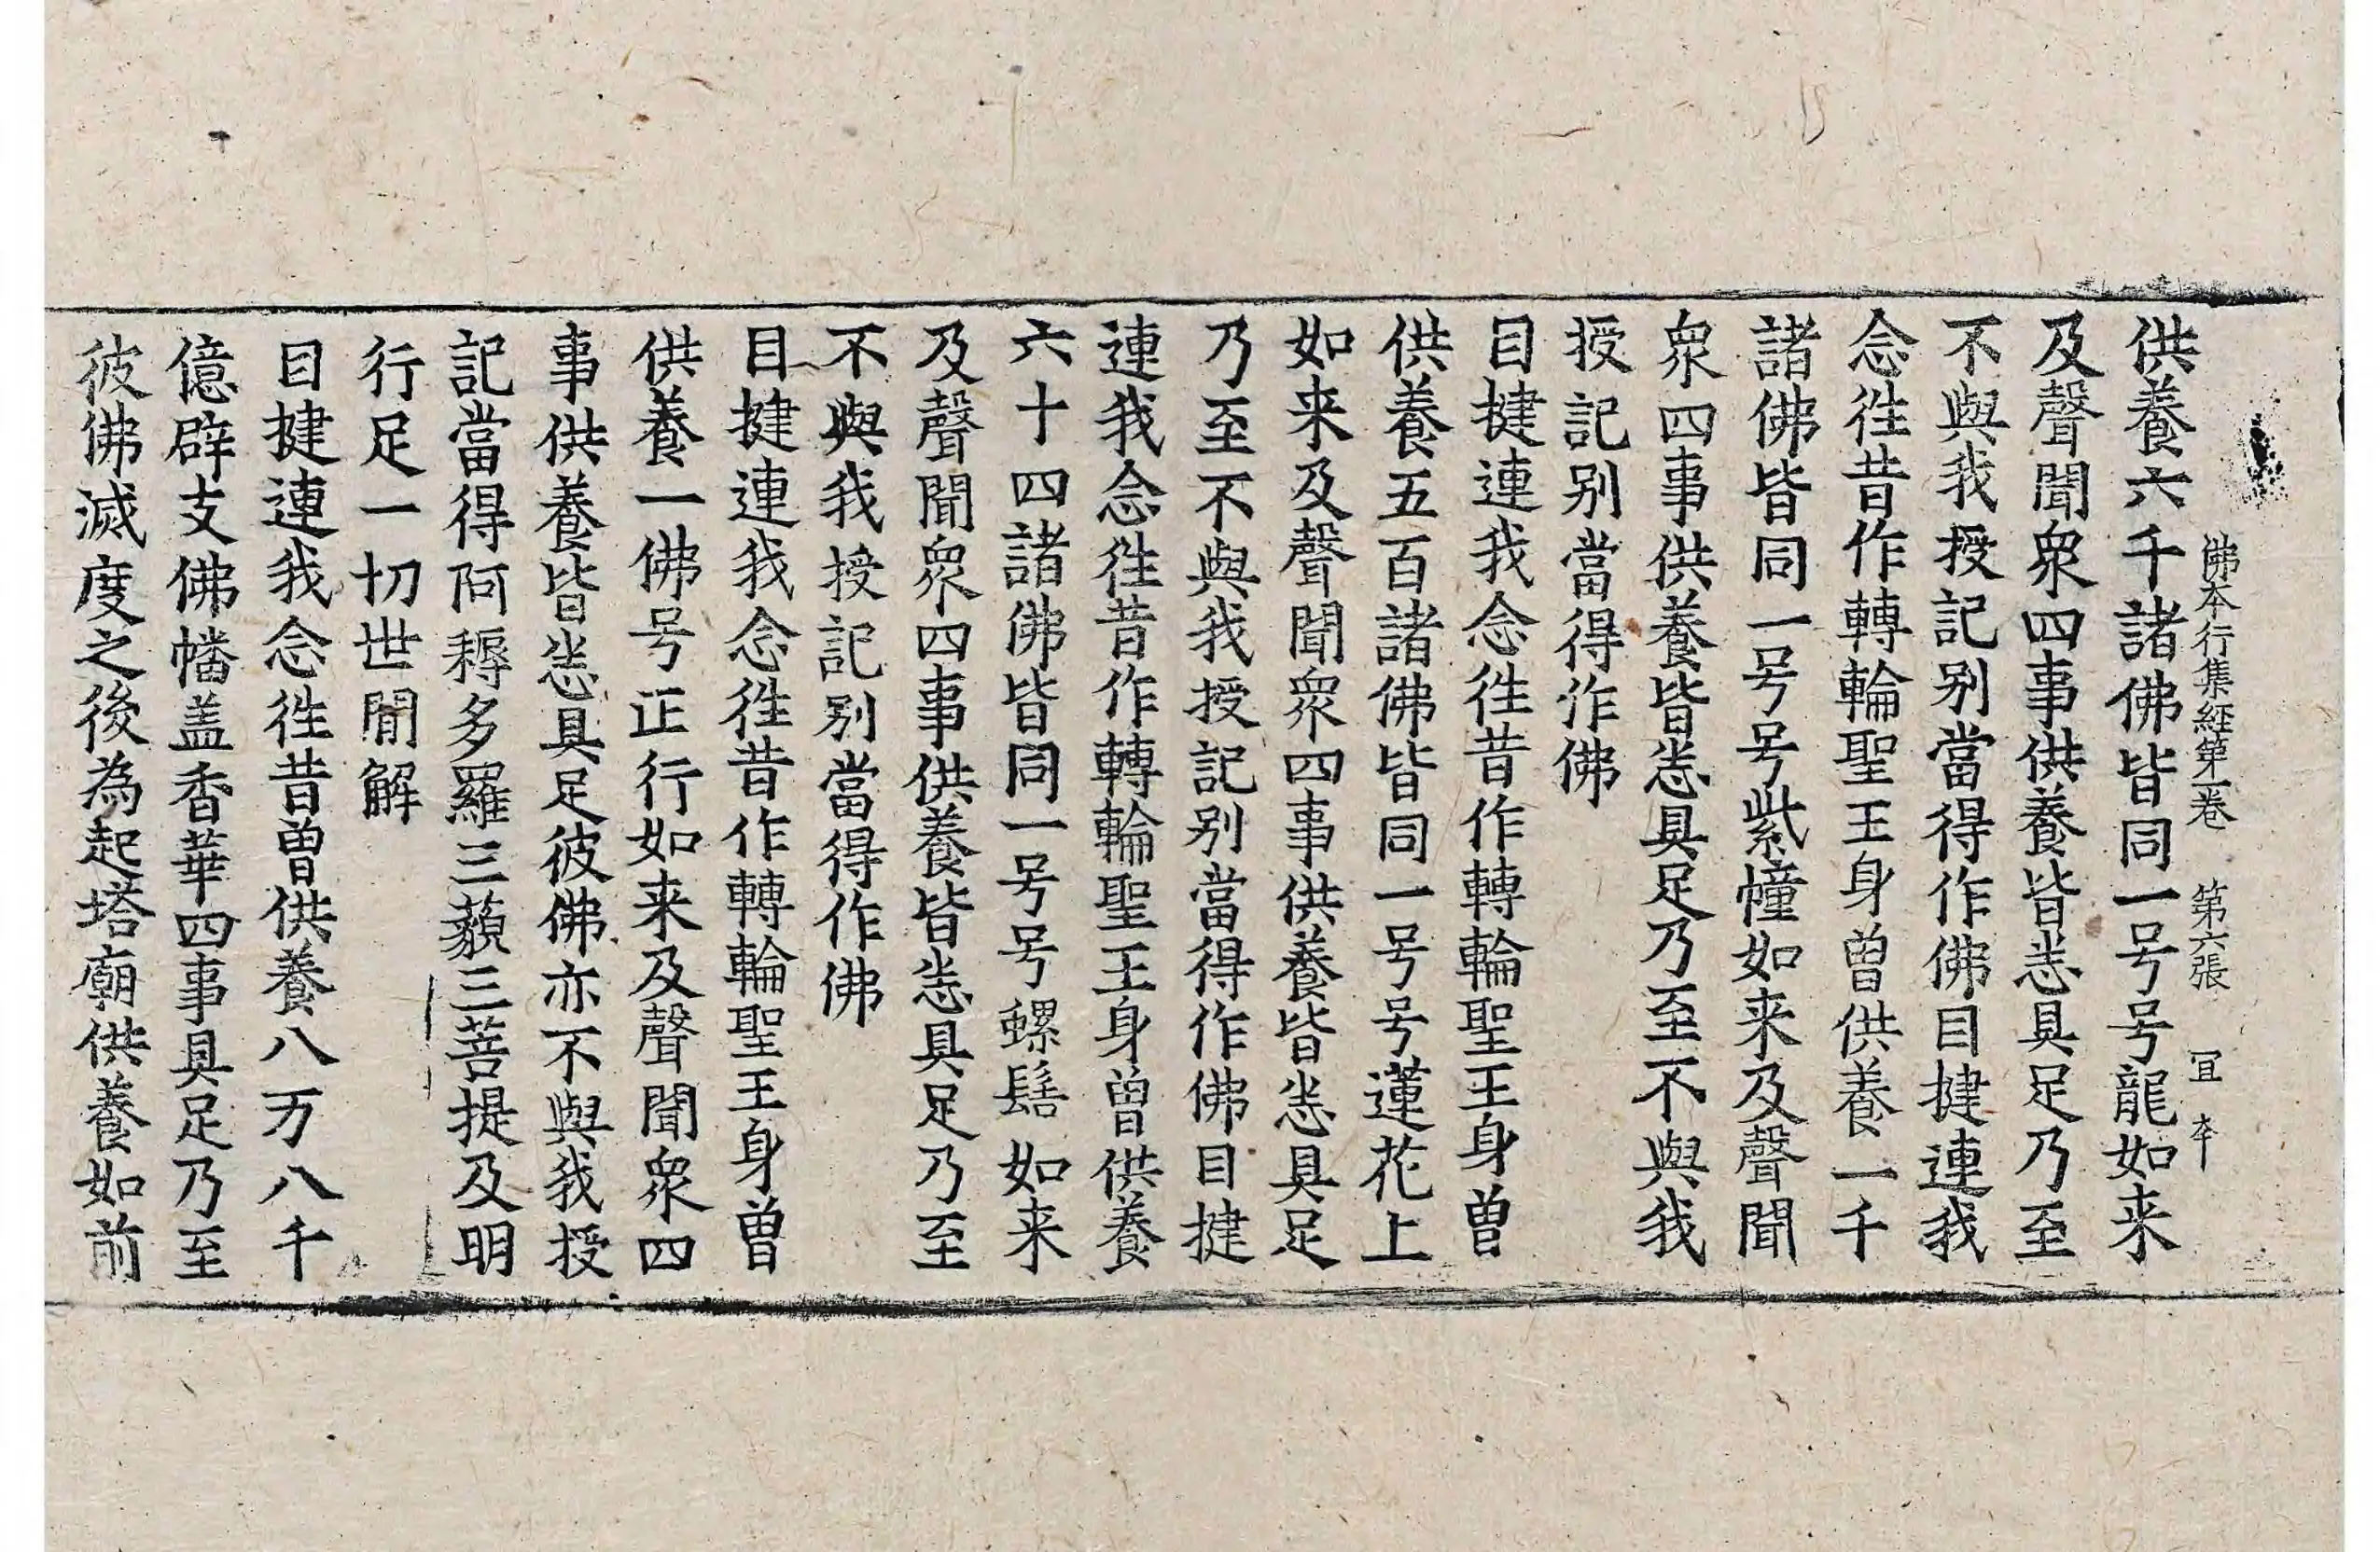 佛本行集經第一卷　第六張　冝　夲
供養六千諸佛皆同一号号龍如来
及聲聞衆四事供養皆悉具足乃至
不與我授記别當得作佛目揵連我
念徃昔作轉輪聖王身曾供養一千
諸佛皆同一号号紫幢如来及聲聞
衆四事供養皆悉具足乃至不與我
授記别當得作佛
目揵連我念徃昔作轉輪聖王身曾
供養五百諸佛皆同一号号蓮花上
如来及聲聞衆四事供養皆悉具足
乃至不與我授記别當得作佛目揵
連我念徃昔作轉輪聖王身曾供養
六十四諸佛皆同一号号螺髻如来
及聲聞衆四事供養皆悉具足乃至
不與我授記别當得作佛
目揵連我念徃昔作轉輪聖王身曾
供養一佛号正行如来及聲聞衆四
事供養皆悉具足彼佛亦不與我授
記當得阿耨多羅三藐三菩提及明
行足一切世間解
目揵連我念徃昔曾供養八万八千
億辟支佛幡盖香華四事具足乃至
彼佛滅度之後為起塔廟供養如前